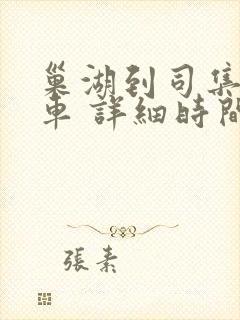 巢湖到司集
車 詳細時間
張素